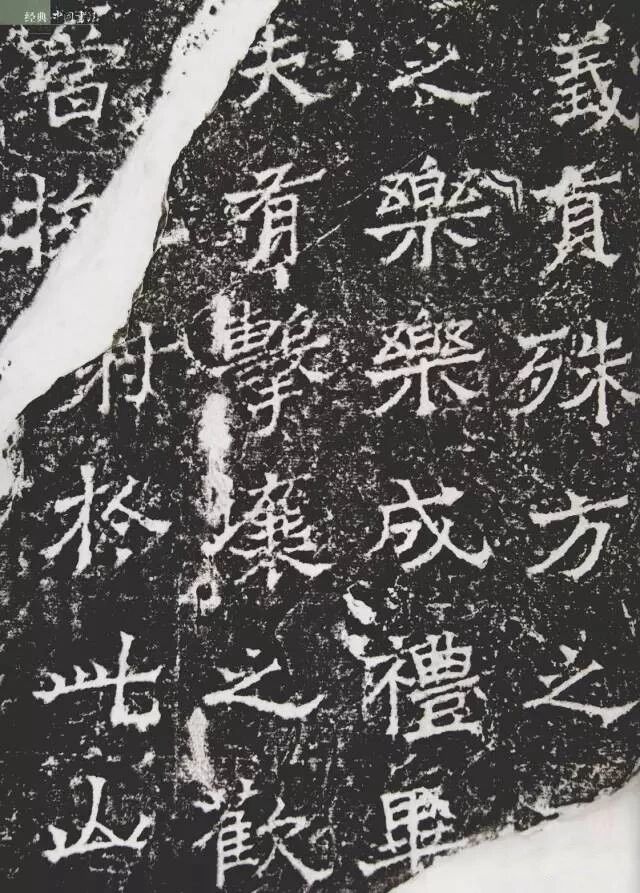 经典 中国書法
義有殊方之
之樂樂成禮畢
夫有擊壤之歡
當將於此山